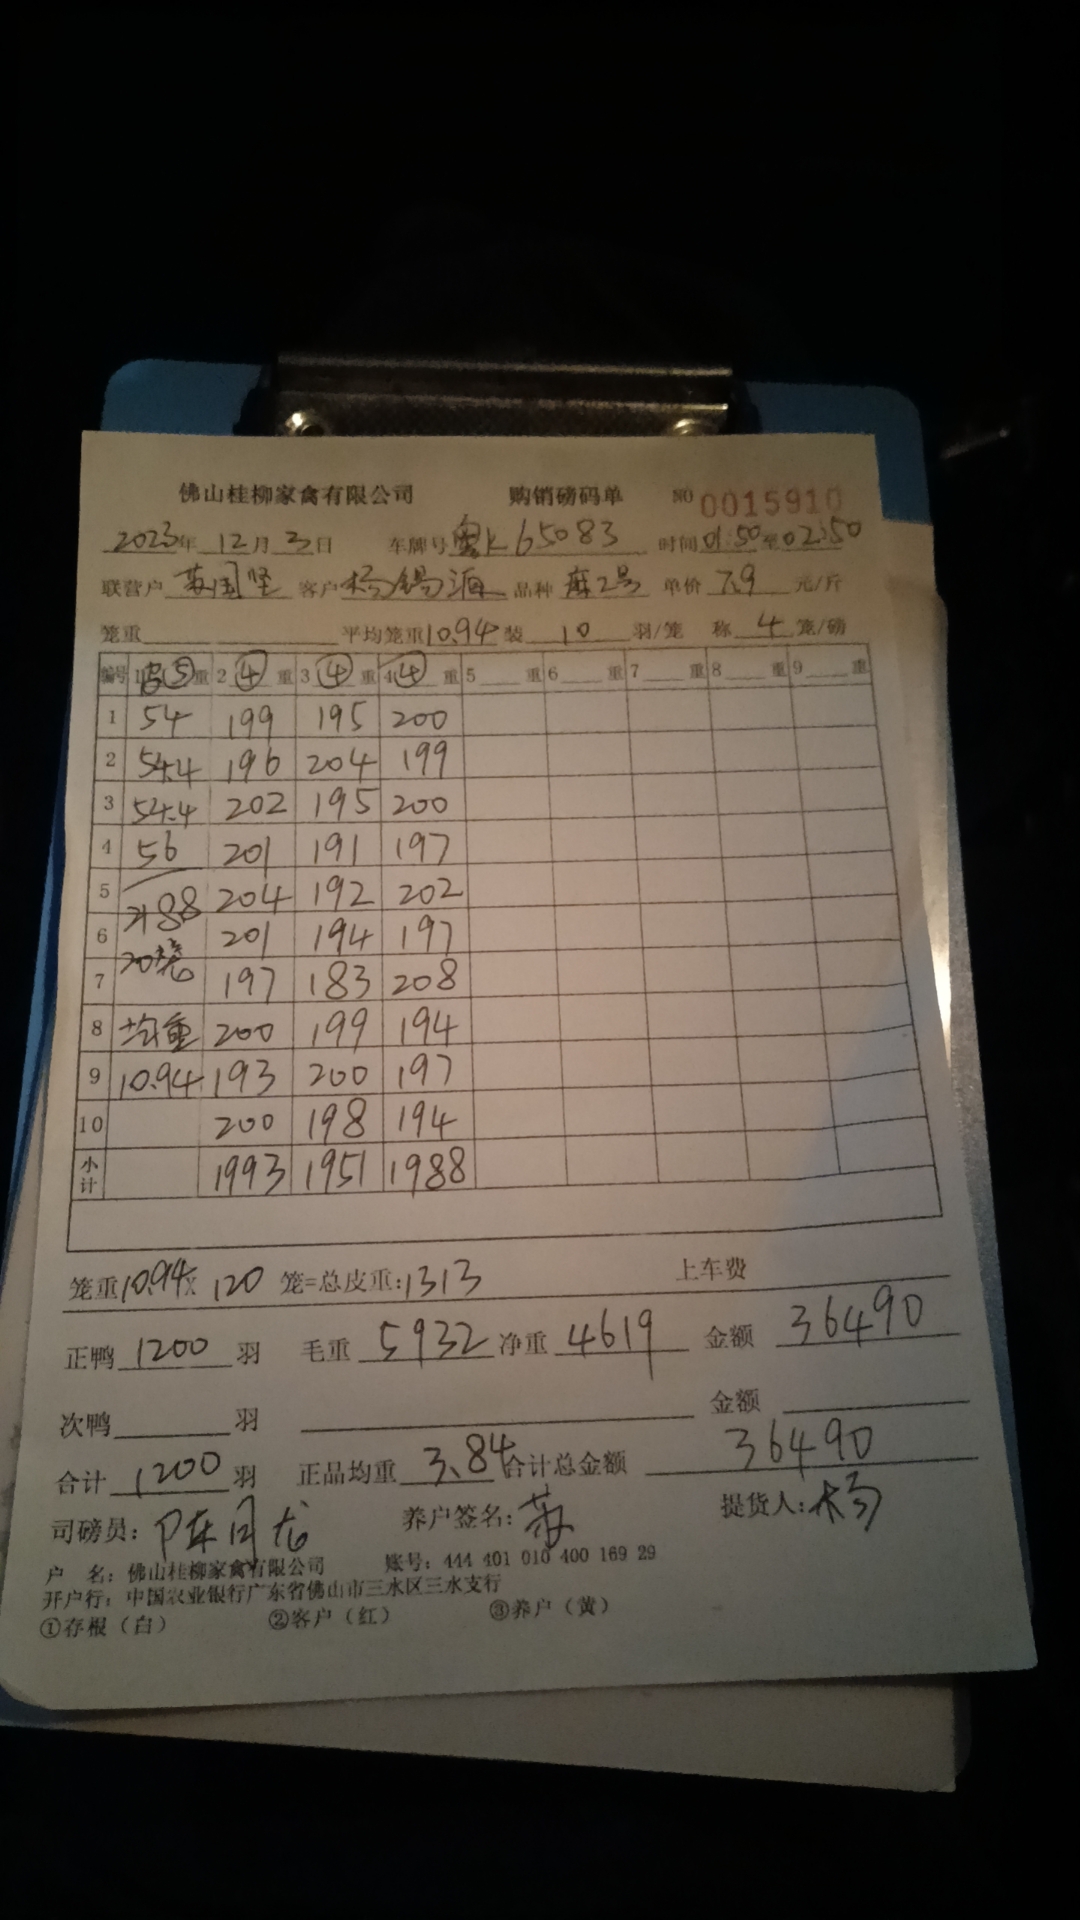 佛山桂柳家禽有限公司 购销磅码单 NO 0015910
2023年 12月 3日 车牌号 粤K65083 时间 01:50至02:50
联营户 苏国坚 客户 杨锡源 品种 麻2号 单价 7.9 元/斤
笼重 平均笼重10.94 装 10 羽/笼 称 4 笼/磅
编号 1 皮⑤ 重 2 ④ 重 3 ④ 重 4 ④ 重 5 重 6 重 7 重 8 重 9 重
1 54 199 195 200
2 54.4 196 204 199
3 54.4 202 195 200
4 56 201 191 197
5 2188 204 192 202
6 20笼 201 194 197
7 197 183 208
8 均重 200 199 194
9 10.94 193 200 197
10 200 198 194
小计 1993 1951 1988
笼重10.94x 120 笼=总皮重:1313 上车费
正鸭 1200 羽 毛重 5932 净重 4619 金额 36490
次鸭 羽 金额
合计 1200 羽 正品均重 3.84 合计总金额 36490
司磅员: 陈月龙 养户签名: 苏 提货人: 杨
户 名: 佛山桂柳家禽有限公司 账号: 444 401 010 400 169 29
开户行: 中国农业银行广东省佛山市三水区三水支行
①存根（白） ②客户（红） ③养户（黄）